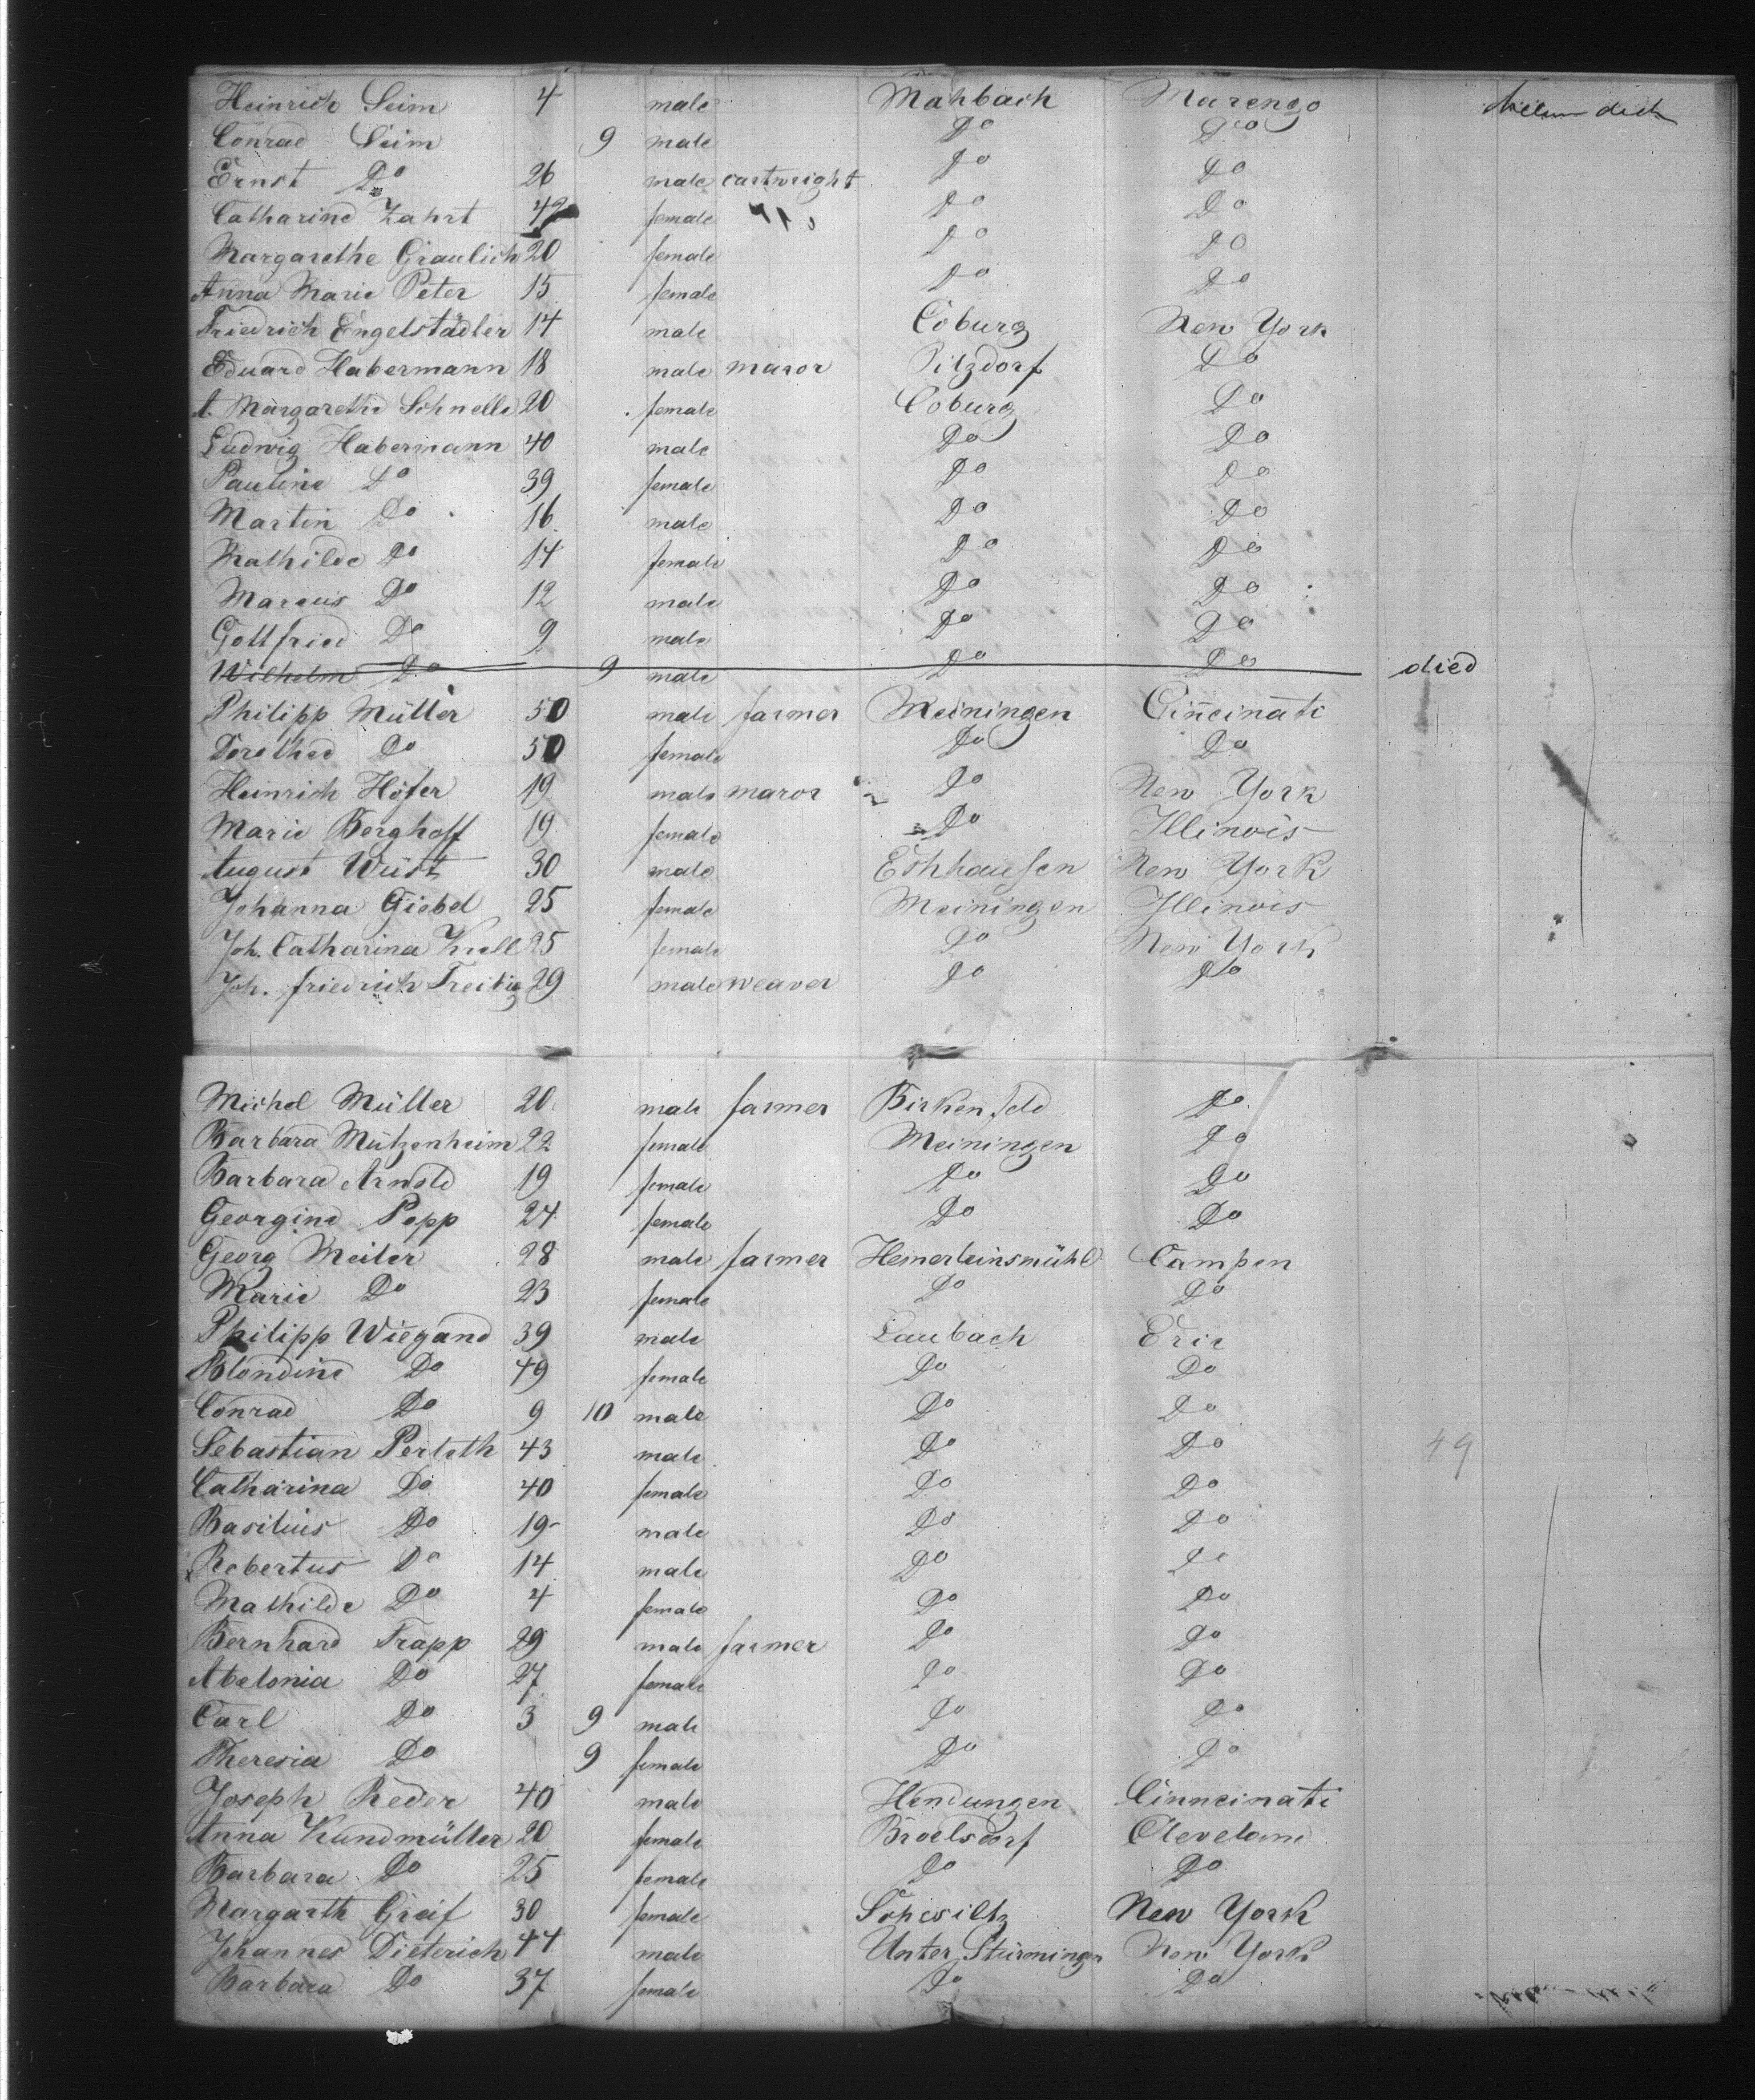 Heinrich Seim 4 male Mahbach Marengo
Conrad Seim 9 male Do Do
Ernst Do 26 male cartwright Do Do
Catharine Zahrt 42 female Do Do
Margarethe Graulich 20 female Do Do
Anna Marie Peter 15 female Do Do
Friedrich Engelstädler 14 male Coburg New York
Eduard Habermann 18 male maror Pilzdorf Do
A. Margarethe Schnelle 20 female Coburg Do
Ludwig Habermann 40 male Do Do
Pauline Do 39 female Do Do
Martin Do 16 male Do Do
Mathilde Do 14 female Do Do
Marcus Do 12 male Do Do
Gottfried Do 9 male Do Do
Wilhelm Do 9 male Do Do died
Philipp Müller 50 male farmer Meiningen Cinncinati
Dorothee Do 50 female Do Do
Heinrich Höfer 19 male maror Do New York
Marie Berghoff 19 female Do Illinois
August Wüst 30 male Eshhausen New York
Johanna Giebel 25 female Meiningen Illinois
Joh. Catharina Krell 25 female Do New York
Joh. friedrich Treibig 29 male weaver Do Do
Michel Müller 20 male farmer Birkenfeld Do
Barbara Mützenheim 22 female Meiningen Do
Barbara Arnold 19 female Do Do
Georgine Popp 24 female Do Do
Georg Meiler 28 male farmer Heinerleinsmühl Campen
Marie Do 23 female Do Do
Philipp Wiegand 39 male Laubach Erie
Blondine Do 49 female Do Do
Conrad Do 9 10 male Do Do
Sebastian Perleth 43 male Do Do 49
Catharina Do 40 female Do Do
Basilius Do 19 male Do Do
Robertus Do 14 male Do Do
Mathilde Do 4 female Do Do
Bernhard Trapp 29 male farmer Do Do
Abelonia Do 27 female Do Do
Carl Do 3 9 male Do Do
Theresia Do 9 female Do Do
Joseph Reder 40 male Hendungen Cinncinati
Anna Kundmüller 20 female Broelsdorf Cleveland
Barbara Do 25 female Do Do
Margarth Greif 30 female Schesiltz New York
Johannes Dieterich 44 male Unter Stürmingen New York
Barbara Do 37 female Do Do